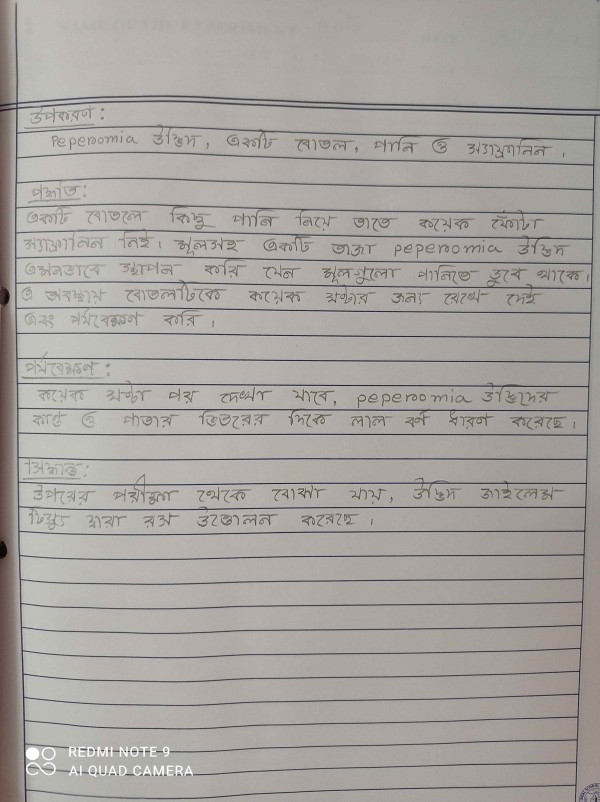 উপকরণ:
Peperomia উদ্ভিদ, একটি বোতল, পানি ও স্যাফ্রানিন।
পদ্ধতি:
একটি বোতলে কিছু পানি নিয়ে তাতে কয়েক ফোঁটা
স্যাফ্রানিন নিই। মূলসহ একটি তাজা peperomia উদ্ভিদ
এমনভাবে স্থাপন করি যেন মূলগুলো পানিতে ডুবে থাকে।
এ অবস্থায় বোতলটিকে কয়েক ঘণ্টার জন্য রেখে দেই
এবং পর্যবেক্ষণ করি।
পর্যবেক্ষণ:
কয়েক ঘণ্টা পর দেখা যাবে, peperomia উদ্ভিদের
কাণ্ড ও পাতার ভিতরের দিকে লাল বর্ণ ধারণ করেছে।
সিদ্ধান্ত:
উপরের পরীক্ষা থেকে বোঝা যায়, উদ্ভিদ জাইলেম
টিস্যু দ্বারা রস উত্তোলন করেছে।
REDMI NOTE 9
AI QUAD CAMERA